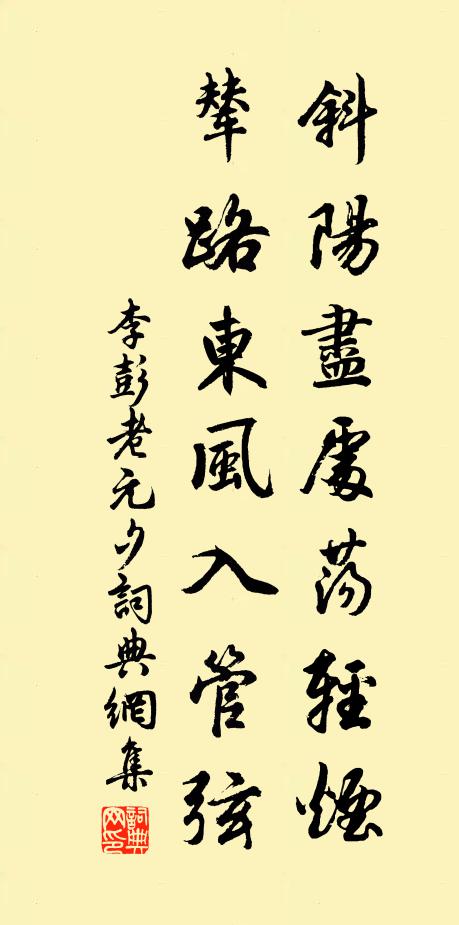 斜陽盡處蕩輕煙
輦路東風入管弦
李彭老元夕詞典網集
詞典網印